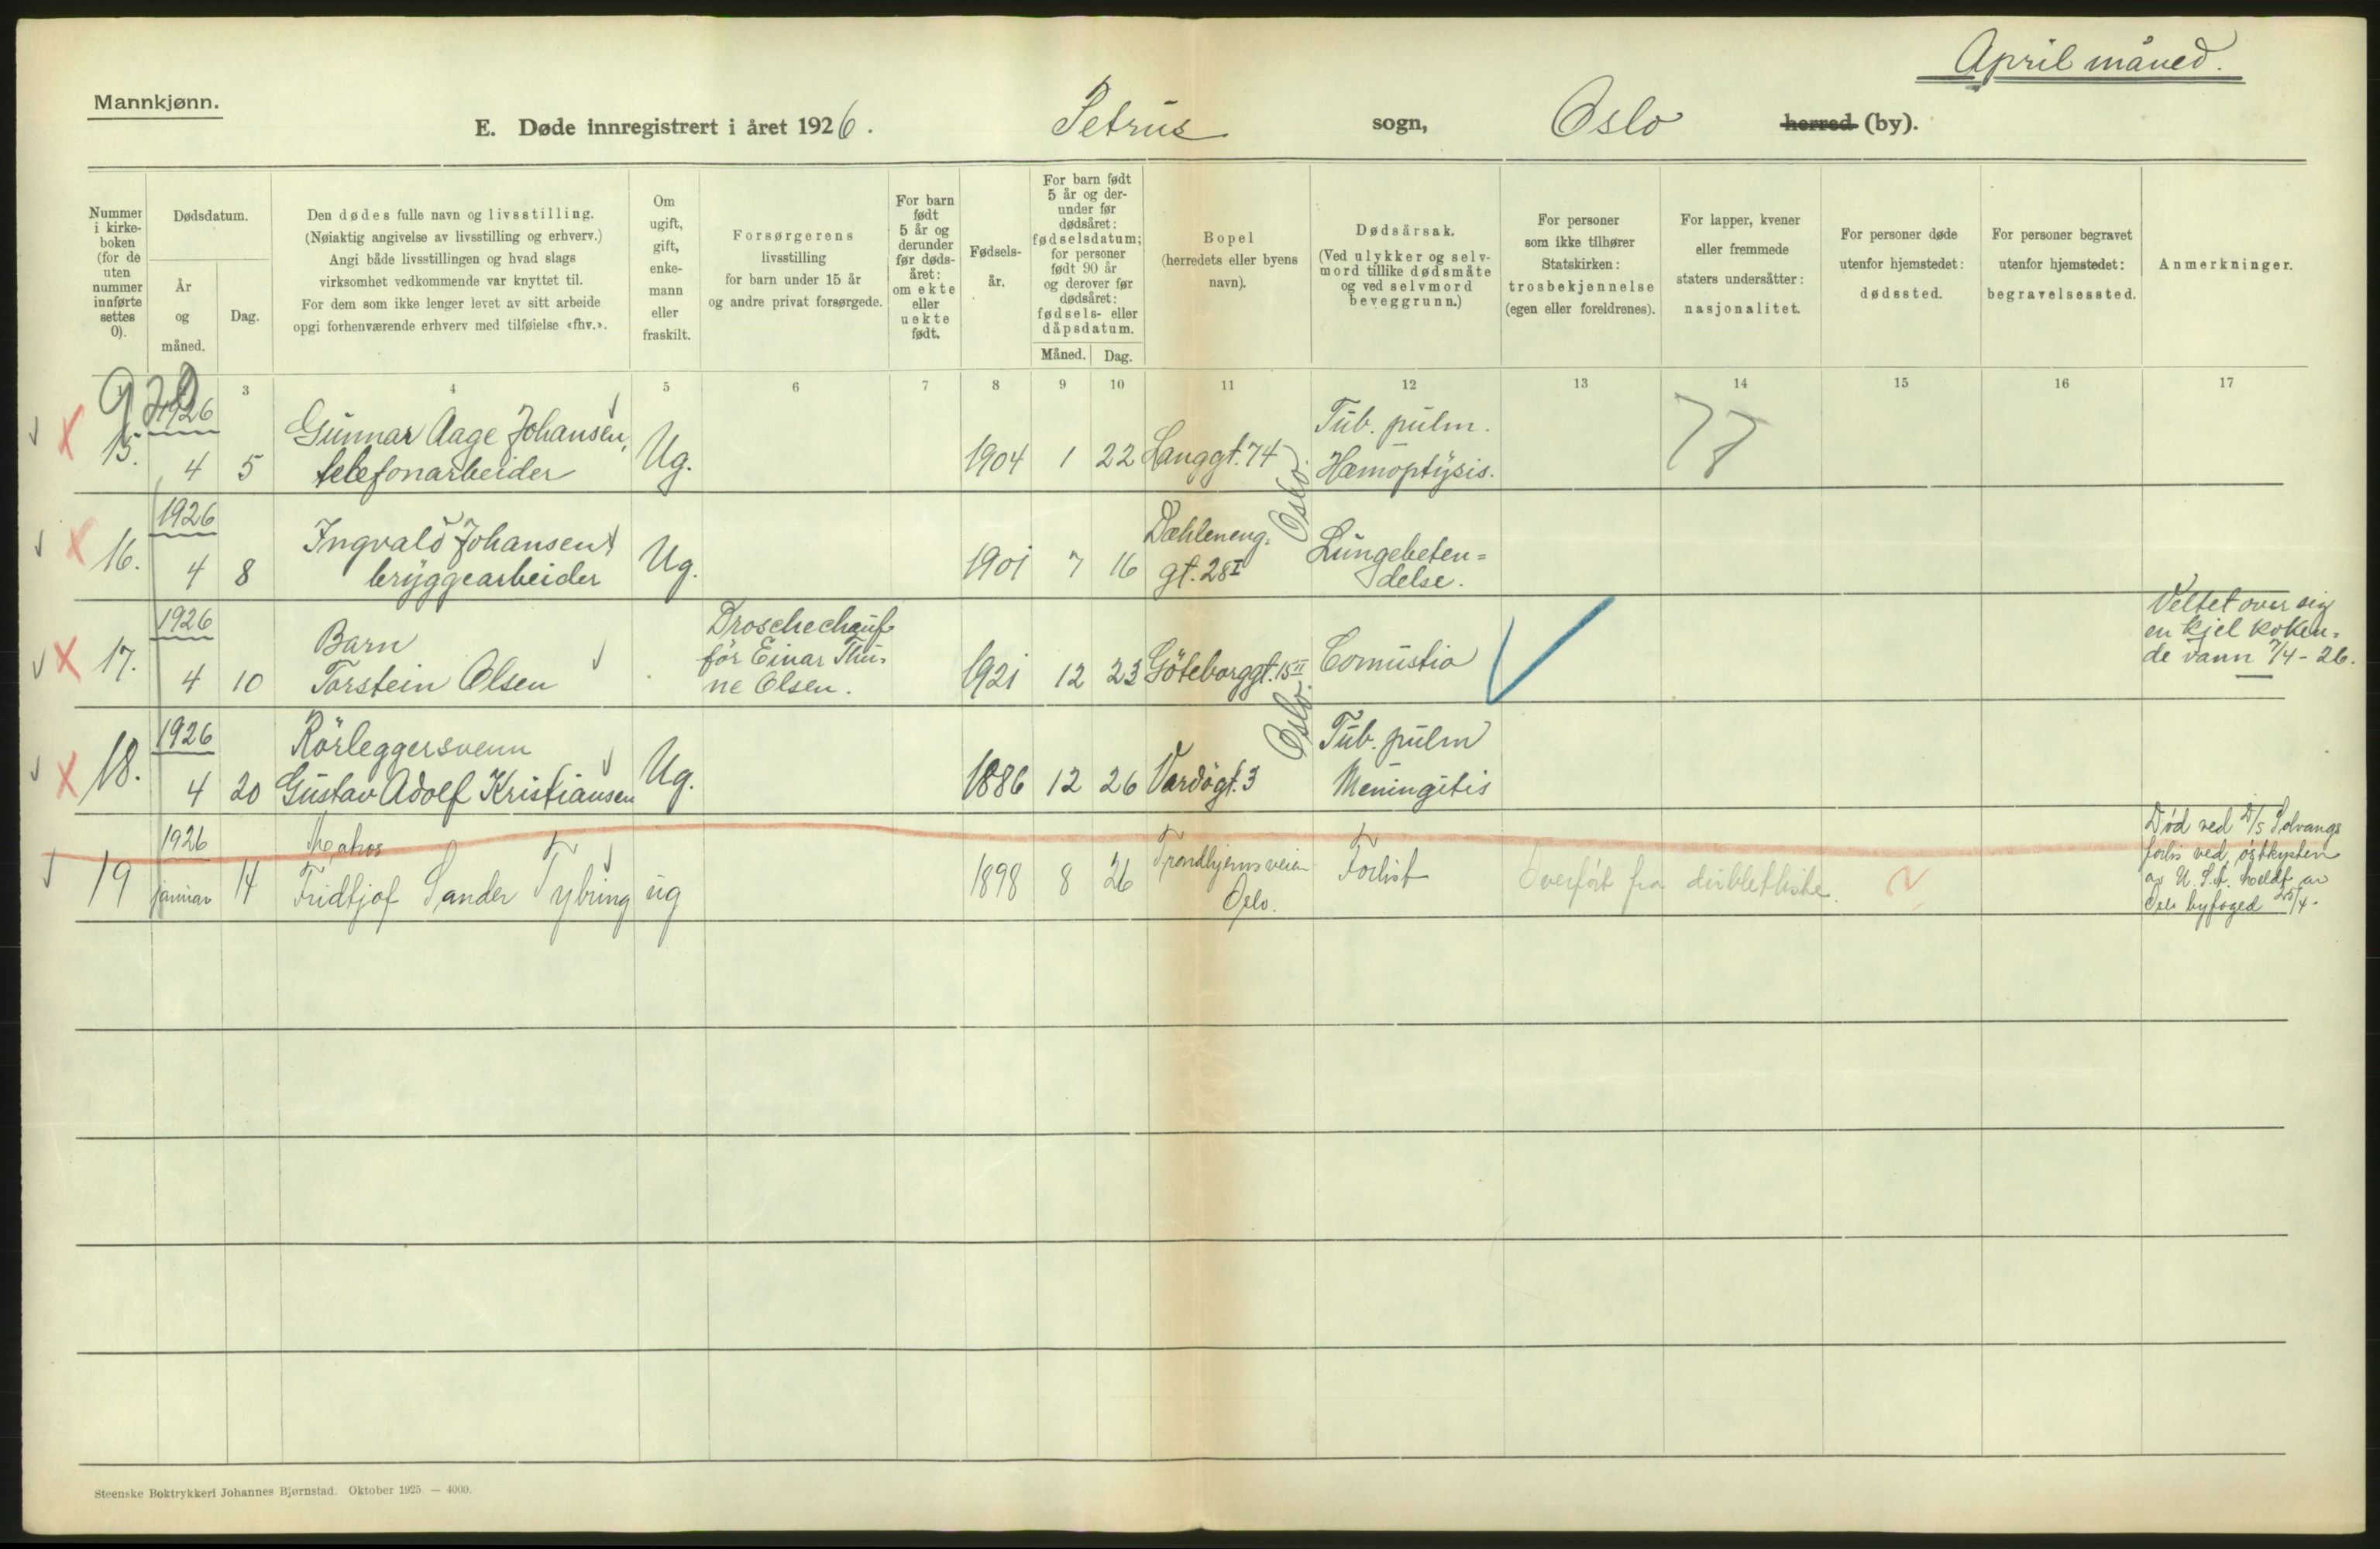 April måned.
Mannkjønn.
E. Døde innregistrert i året 1926. Petrus sogn, Oslo herred (by).
Nummer i kirke-boken (for de uten nummer innførte settes 0).
Dødsdatum.
År og måned.
Dag.
Den dødes fulle navn og livsstilling.
(Nøiaktig angivelse av livsstilling og erhverv.)
Angi både livsstillingen og hvad slags
virksomhet vedkommende var knyttet til.
For dem som ikke lenger levet av sitt arbeide
opgi forhenværende erhverv med tilføielse «fhv.».
Om ugift, gift, enke-mann eller fraskilt.
Forsørgerens
livsstilling
for barn under 15 år
og andre privat forsørgede.
For barn født 5 år og derunder før døds-året: om ekte eller uekte født.
Fødsels-år.
For barn født 5 år og der-under før dødsåret: fødselsdatum; for personer født 90 år og derover før dødsåret: fødsels- eller dåpsdatum.
Måned. Dag.
Bopel
(herredets eller byens
navn).
Dødsårsak.
(Ved ulykker og selv-
mord tillike dødsmåte
og ved selvmord
beveggrunn.)
For personer
som ikke tilhører
Statskirken:
trosbekjennelse
(egen eller foreldrenes).
For lapper, kvener
eller fremmede
staters undersåtter:
nasjonalitet.
For personer døde
utenfor hjemstedet:
dødssted.
For personer begravet
utenfor hjemstedet:
begravelsessted.
Anmerkninger.
3 4 5 6 7 8 9 10 11 12 13 14 15 16 17
1926
15. 4 5 Gunnar Aage Johansen,
telefonarbeider
Ug. 1904 1 22 Langgt. 74
Oslo.
Tub. pulm.
Hæmoptysis.
1926
16. 4 8 Ingvald Johansen
bryggearbeider
Ug. 1901 7 16 Dæhleneng-
gt. 28 I
Lungebeten=
delse.
1926
17. 4 10 Barn
Torstein Olsen
Droschechauf
för Einar Thu-
ne Olsen.
1921 12 23 Göteborggt. 15 II
Oslo.
Comustio
Veltet over sig
en kjel koken=
de vann 7/4-26.
1926
18. 4 20 Rörleggersvenn
Gustav Adolf Kristiansen
Ug. 1886 12 26 Vardögt. 3
Tub. pulm
Meningitis
1926
19 januar 14 Matros
Fridtjof Sander Tybring
ug 1898 8 26 Trondhjemsveien
Oslo.
Forlist
Overført fra dublettliste.
Død ved D/S Solvangs
forlis ved østkysten
av U.S.A. meldt av
Oslo byfoged 25/4.
Steenske Boktrykkeri Johannes Bjørnstad. Oktober 1925. — 4000.